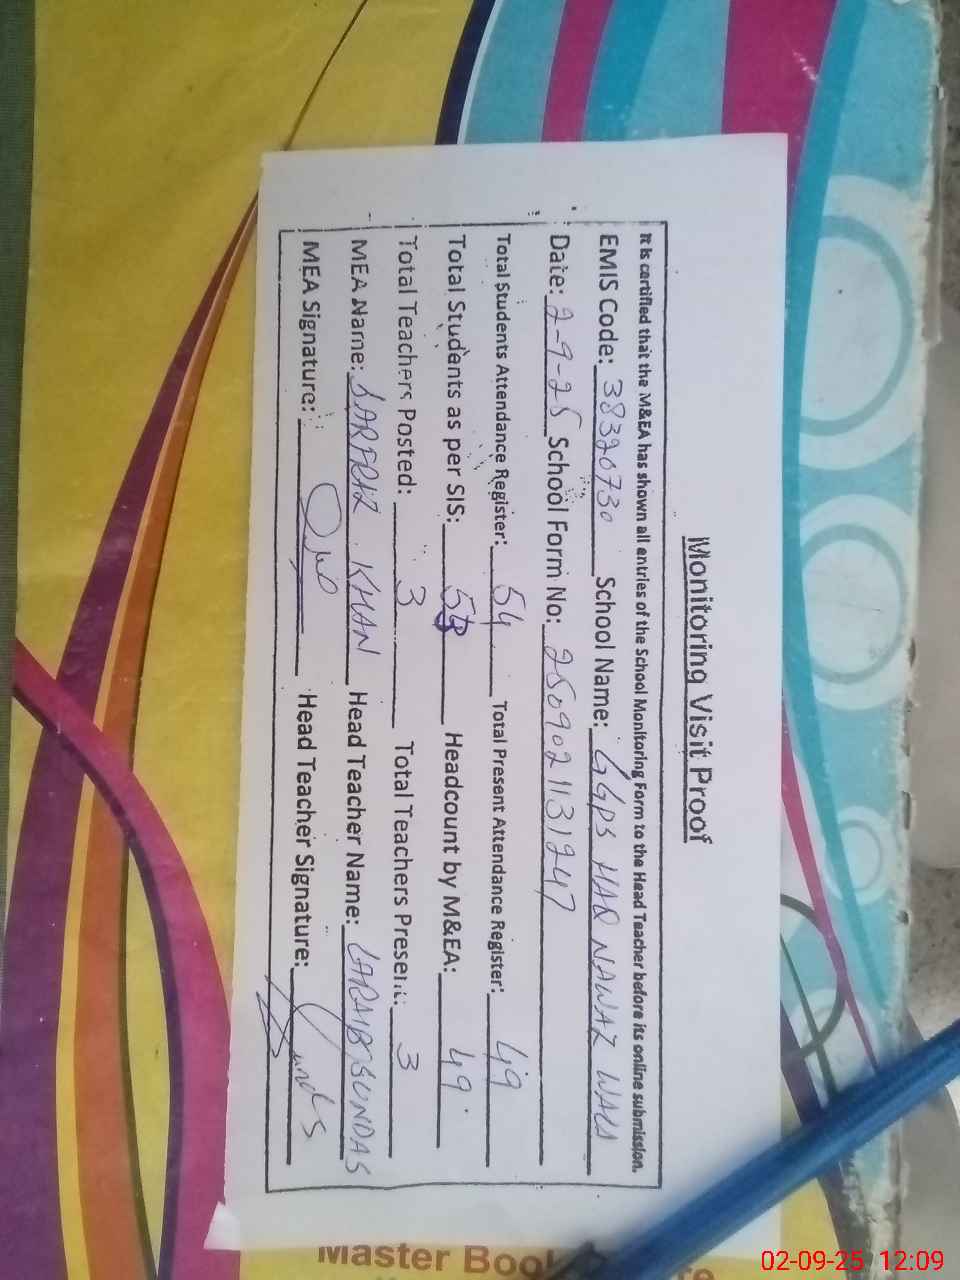 Monitoring Visit Proof
It is certified that the M&EA has shown all entries of the School Monitoring Form to the Head Teacher before its online submission.
EMIS Code: 38320730 School Name: GGPS HAQ NAWAZ WALA
Date: 2-9-25 School Form No: 2509021131247
Total Students Attendance Register: 54 Total Present Attendance Register: 49
Total Students as per SIS: 53 Headcount by M&EA: 49
Total Teachers Posted: 3 Total Teachers Present: 3
MEA Name: SARFRAZ KHAN Head Teacher Name: LARAIB SUNDAS
MEA Signature: Head Teacher Signature:
Master Book
02-09-25 12:09